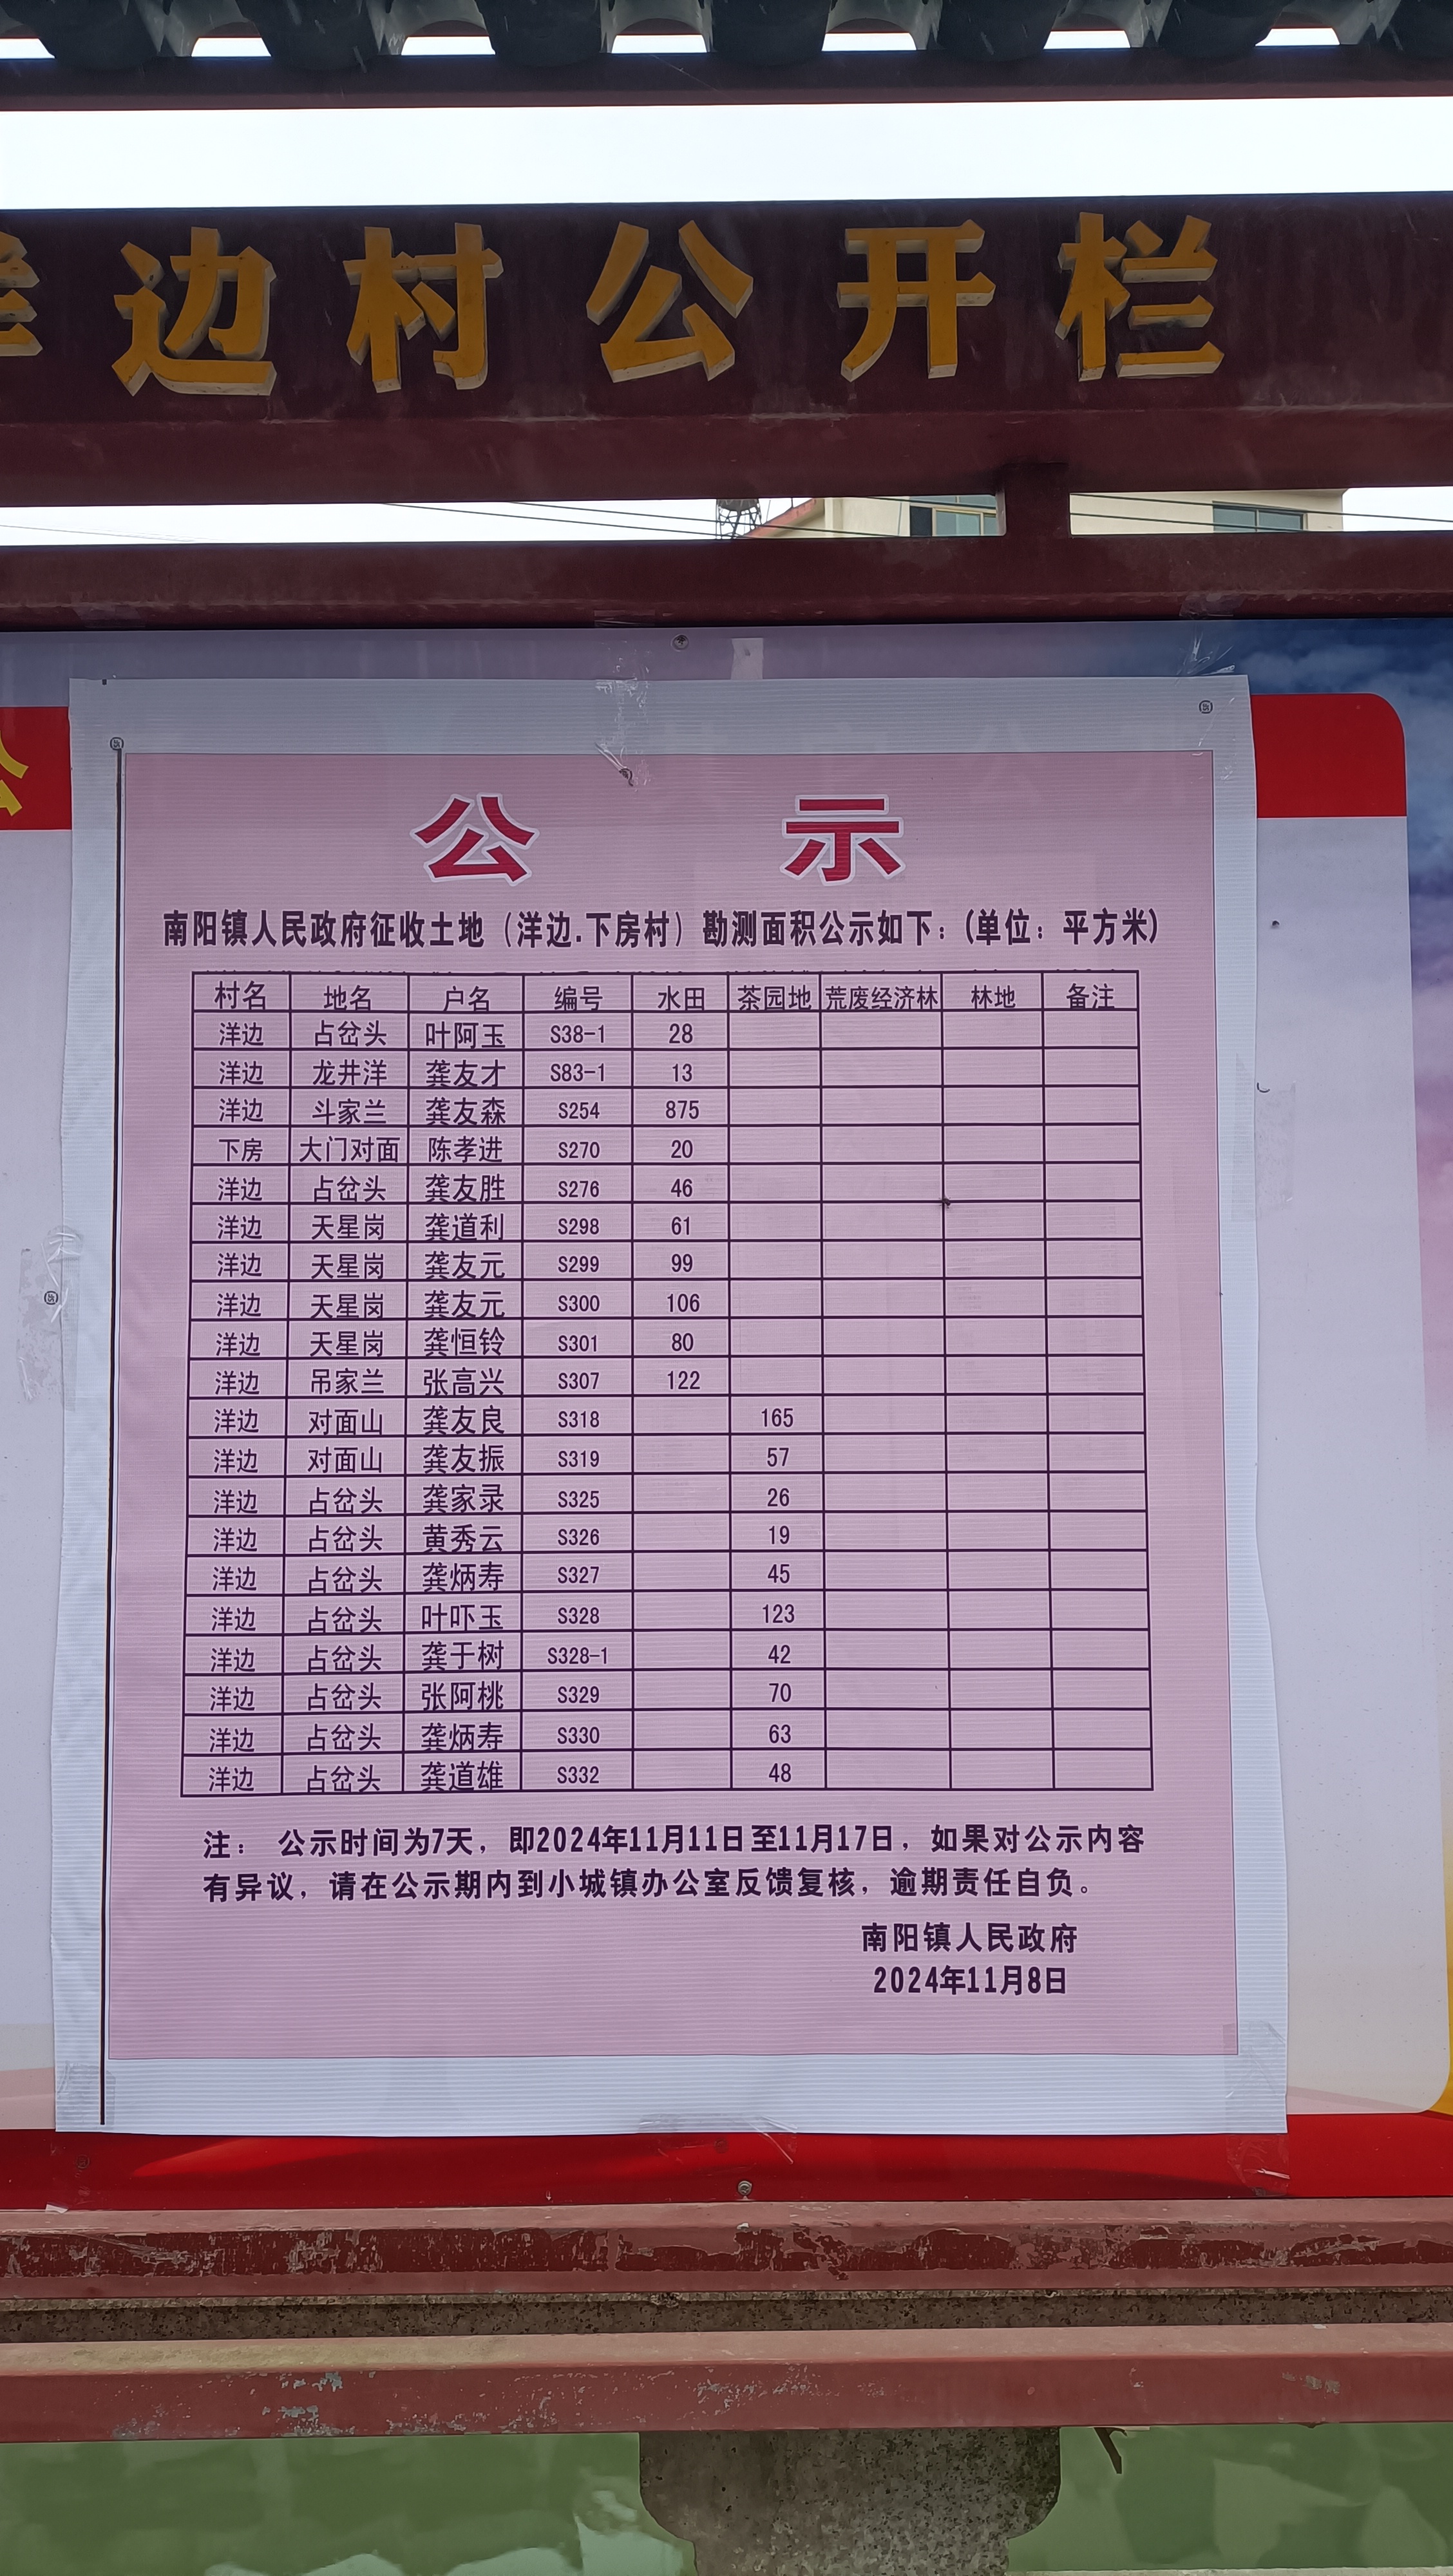 洋边村公开栏
公
公 示
南阳镇人民政府征收土地（洋边.下房村）勘测面积公示如下：(单位：平方米)
村名 地名 户名 编号 水田 茶园地 荒废经济林 林地 备注
洋边 占岔头 叶阿玉 S38-1 28
洋边 龙井洋 龚友才 S83-1 13
洋边 斗家兰 龚友森 S254 875
下房 大门对面 陈孝进 S270 20
洋边 占岔头 龚友胜 S276 46
洋边 天星岗 龚道利 S298 61
洋边 天星岗 龚友元 S299 99
洋边 天星岗 龚友元 S300 106
洋边 天星岗 龚恒铃 S301 80
洋边 吊家兰 张高兴 S307 122
洋边 对面山 龚友良 S318 165
洋边 对面山 龚友振 S319 57
洋边 占岔头 龚家录 S325 26
洋边 占岔头 黄秀云 S326 19
洋边 占岔头 龚炳寿 S327 45
洋边 占岔头 叶吓玉 S328 123
洋边 占岔头 龚于树 S328-1 42
洋边 占岔头 张阿桃 S329 70
洋边 占岔头 龚炳寿 S330 63
洋边 占岔头 龚道雄 S332 48
注： 公示时间为7天，即2024年11月11日至11月17日，如果对公示内容
有异议，请在公示期内到小城镇办公室反馈复核，逾期责任自负。
南阳镇人民政府
2024年11月8日